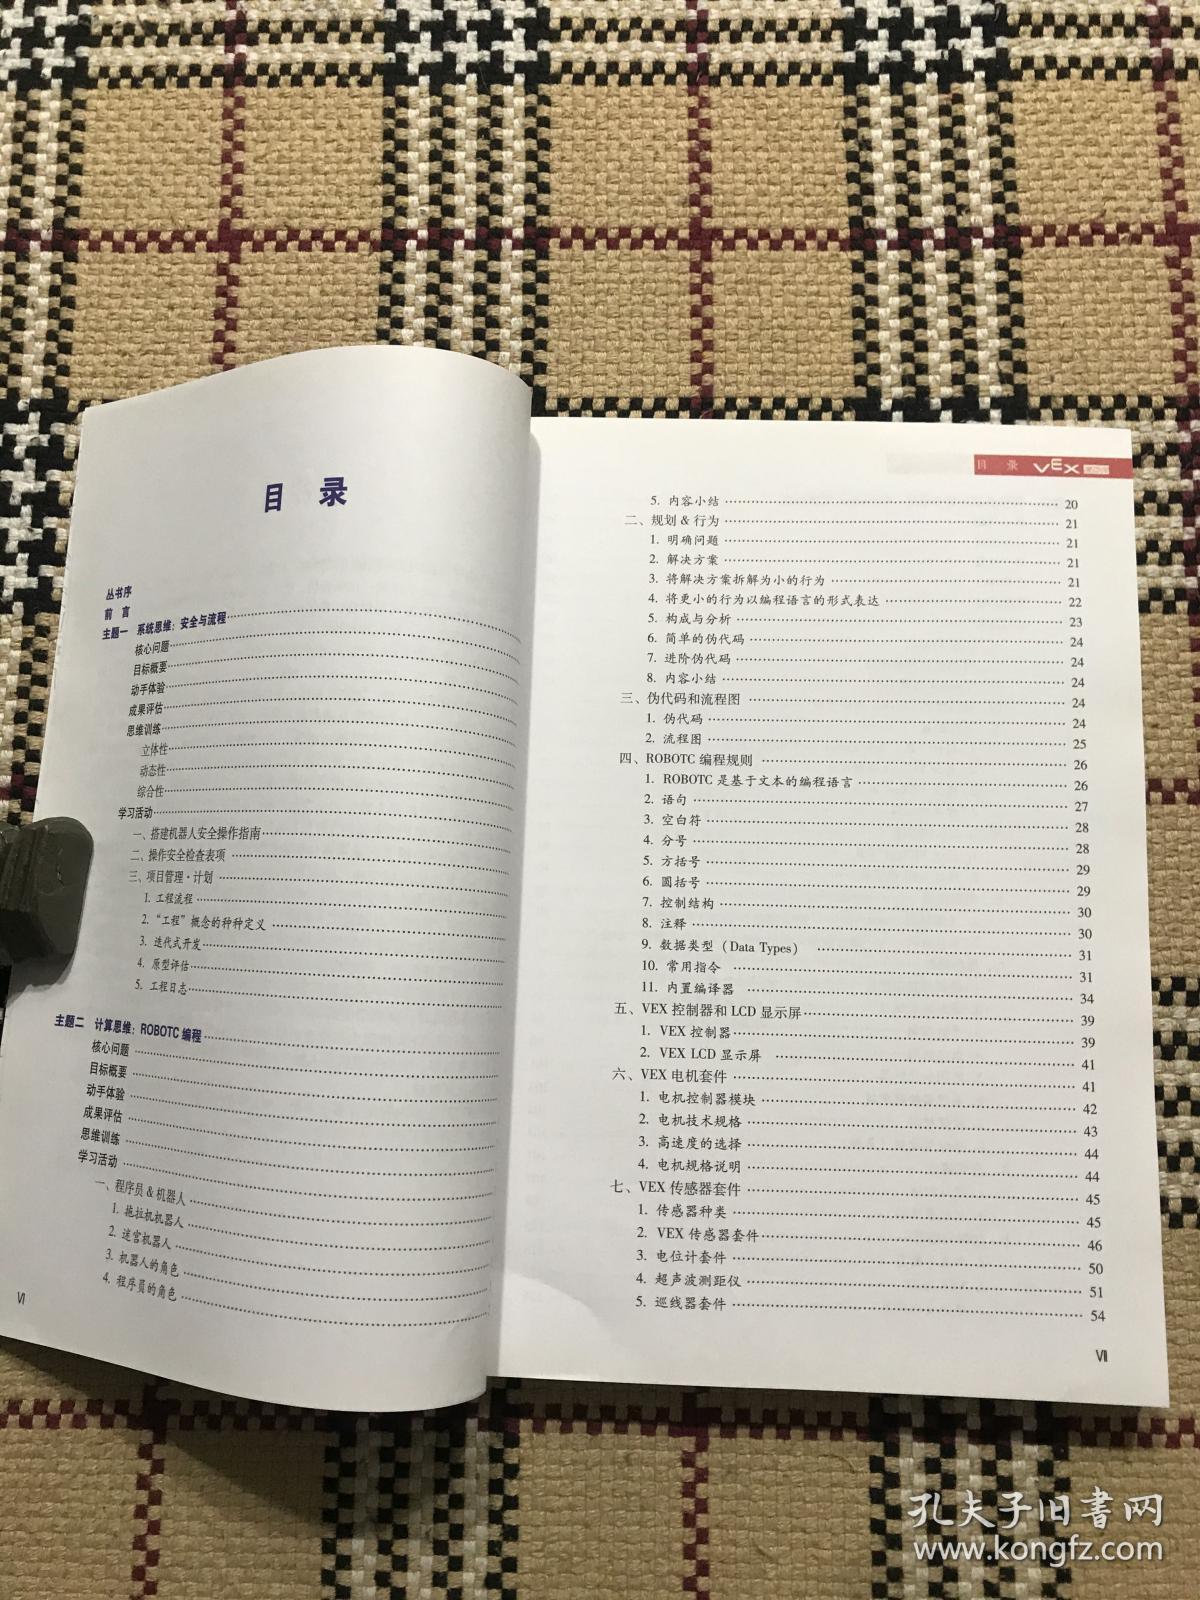 目 录
丛书序
前 言
主题一 系统思维：安全与流程
核心问题
目标概要
动手体验
成果评估
思维训练
立体性
动态性
综合性
学习活动
一、搭建机器人安全操作指南
二、操作安全检查表项
三、项目管理·计划
1. 工程流程
2. “工程”概念的种种定义
3. 迭代式开发
4. 原型评估
5. 工程日志
主题二 计算思维：ROBOTC 编程
核心问题
目标概要
动手体验
成果评估
思维训练
学习活动
一、程序员 & 机器人
1. 拖拉机机器人
2. 迷宫机器人
3. 机器人的角色
4. 程序员的角色
VI
目 录 VEX
5. 内容小结 20
二、规划 & 行为 21
1. 明确问题 21
2. 解决方案 21
3. 将解决方案拆解为小的行为 21
4. 将更小的行为以编程语言的形式表达 22
5. 构成与分析 23
6. 简单的伪代码 24
7. 进阶伪代码 24
8. 内容小结 24
三、伪代码和流程图 24
1. 伪代码 24
2. 流程图 25
四、ROBOTC 编程规则 26
1. ROBOTC 是基于文本的编程语言 26
2. 语句 27
3. 空白符 28
4. 分号 28
5. 方括号 29
6. 圆括号 29
7. 控制结构 30
8. 注释 30
9. 数据类型（Data Types） 31
10. 常用指令 31
11. 内置编译器 34
五、VEX 控制器和 LCD 显示屏 39
1. VEX 控制器 39
2. VEX LCD 显示屏 41
六、VEX 电机套件 41
1. 电机控制器模块 42
2. 电机技术规格 43
3. 高速度的选择 44
4. 电机规格说明 44
七、VEX 传感器套件 45
1. 传感器种类 45
2. VEX 传感器套件 46
3. 电位计套件 50
4. 超声波测距仪 51
5. 巡线器套件 54
VII
孔夫子旧書网
www.kongfz.com